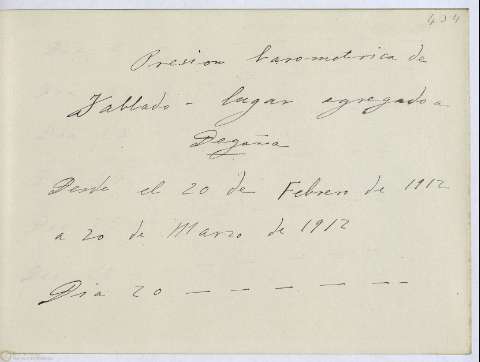 434
Presion barometrica de
Tablado - lugar agregado a
Degaña
Desde el 20 de Febrero de 1912
a 20 de Marzo de 1912
Dia 20 — — — — — —